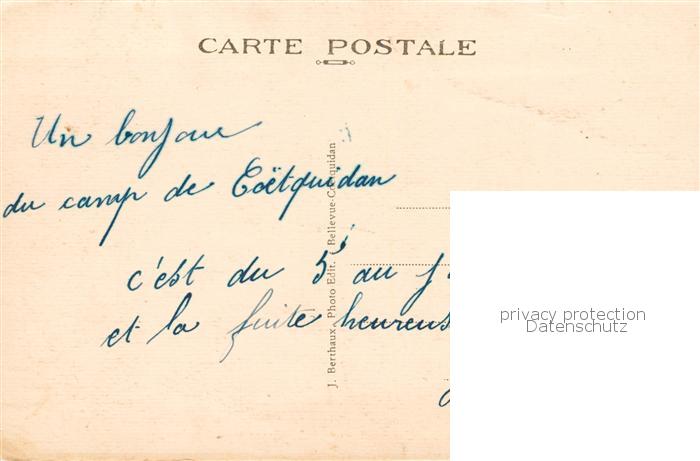 CARTE POSTALE
Un bonjour
du camp de Coëtquidan
c'est du 5 au
et la fuite heureus
J. Berthaux, Photo Edit. Bellevue-Coëtquidan
privacy protection
Datenschutz